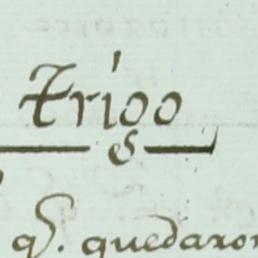 Trigo
q. quedaron